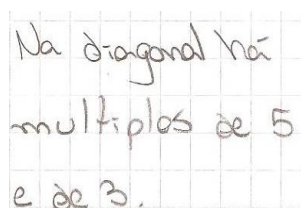 Na diagonal há
multiplos de 5
e de 3.